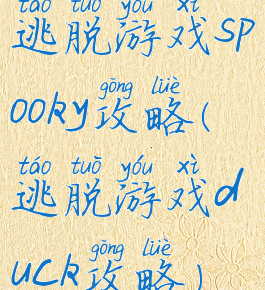 táo tuō yóu xì
逃脱游戏sp
gōng lüè
ooky攻略(
táo tuō yóu xì
逃脱游戏d
gōng lüè
uck攻略)